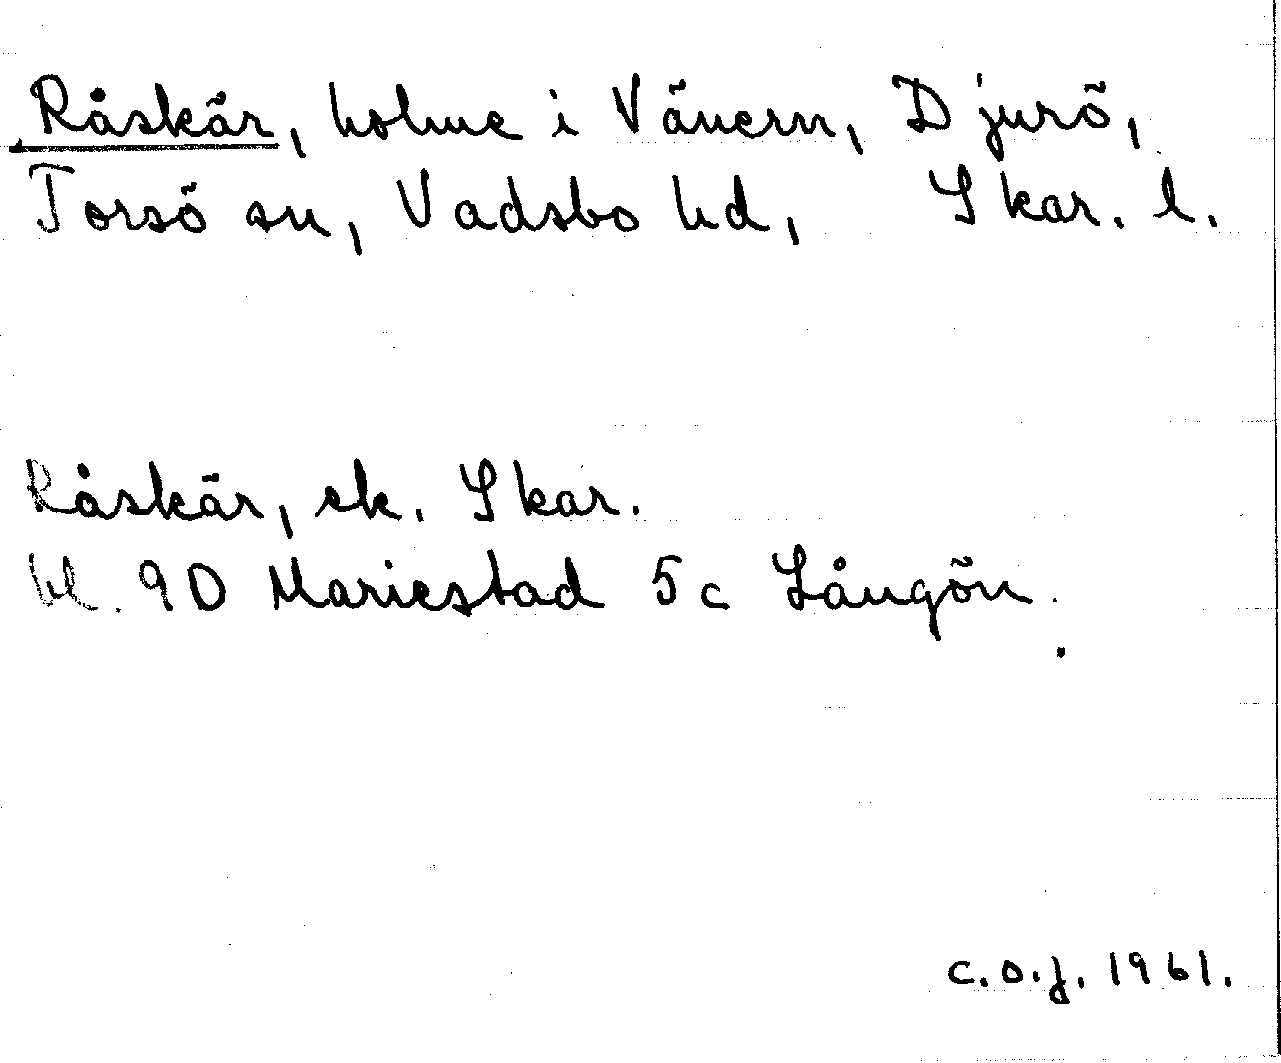 Råskär, holme i Vänern, Djurö,
Torsö sn, Vadsbo hd, Skar. l.
Råskär, ek. Skar.
bl. 9D Mariestad 5c Långön.
c.o.j. 1961.